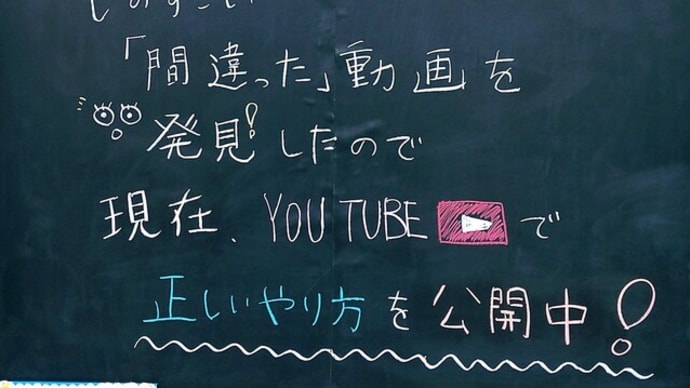 「間違った」動画を
発見!したので
現在、YOU TUBEで
正しいやり方を公開中!